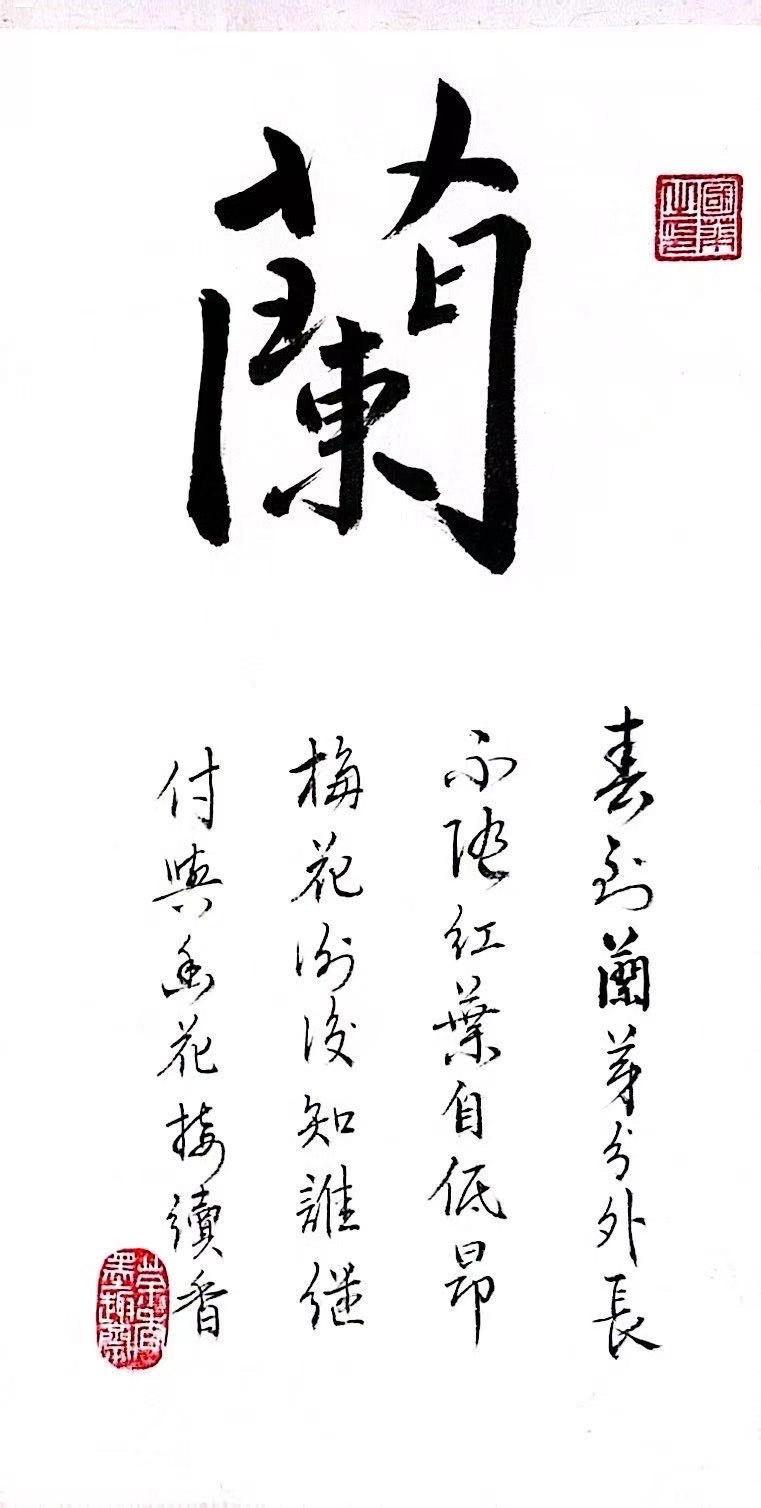 蘭
國華之印
春到蘭芽分外長
不隨紅葉自低昂
梅花謝後知誰继
付與幽花接續香